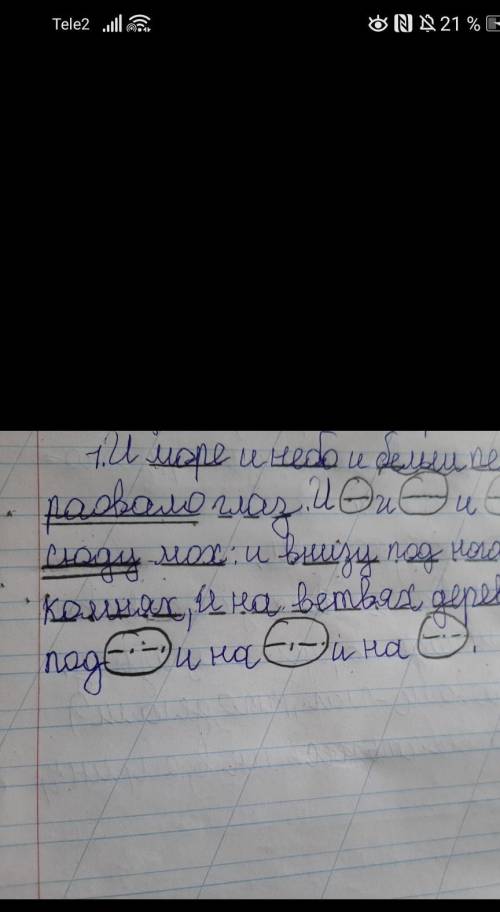 Tele2 21 %
1. И море и небо и белый пе
радвало глаз. И и и
сюду мох: и внизу под ного
камнях, и на ветвях дерев
под и на и на .